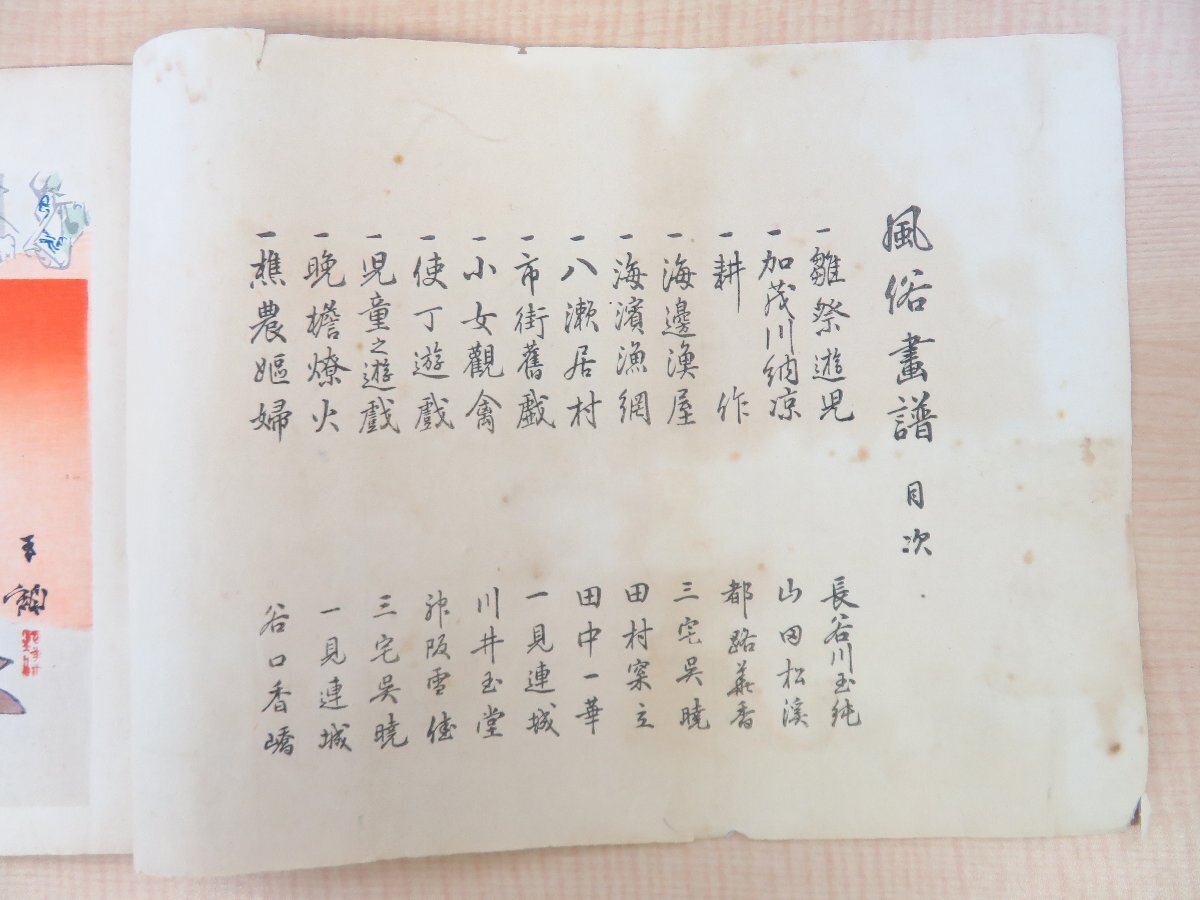 風俗畫譜 目次
一雛祭遊児 長谷川玉純
一加茂川納凉 山田松溪
一耕作 都路華香
一海邊漁屋 三宅呉曉
一海濱漁網 田村宗立
一八瀬居村 田中一華
一市街舊戯 一見連城
一小女觀禽 川井玉堂
一使丁遊戲 神阪雪佳
一児童之遊戲 三宅呉曉
一晩檐燎火 一見連城
一樵農嫗婦 谷口香嶠